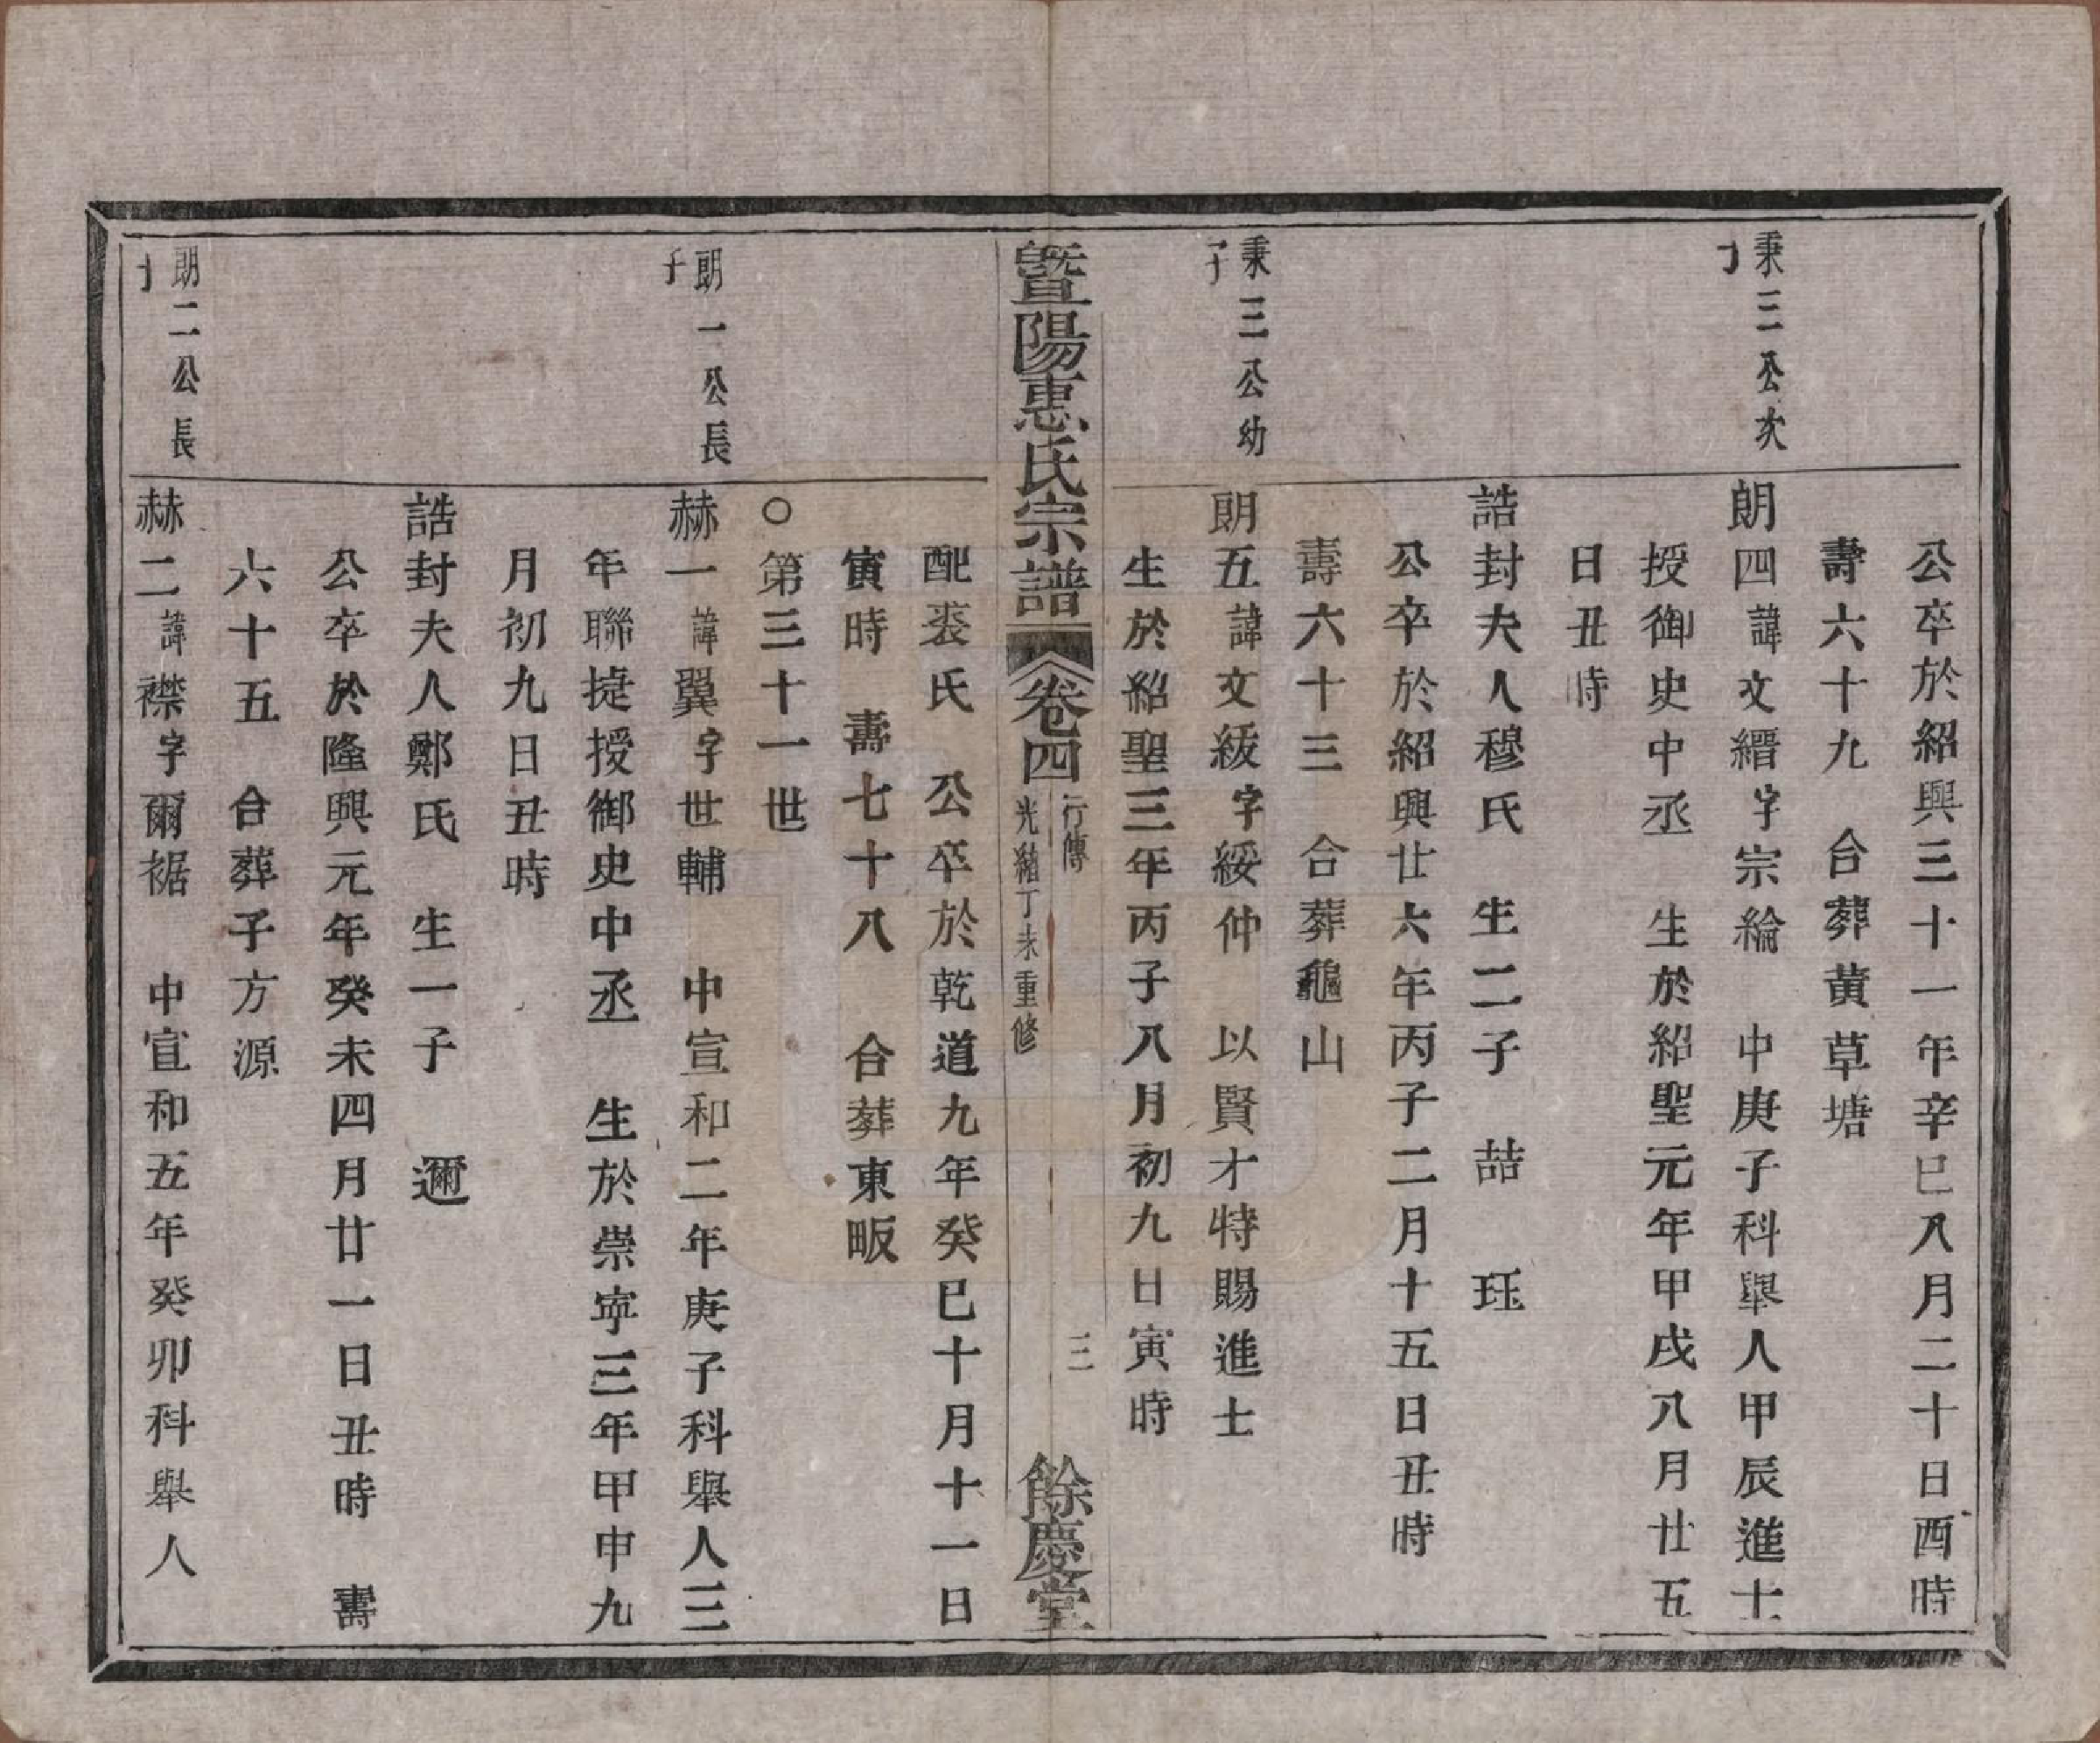 公卒於紹興三十一年辛巳八月二十日酉時
壽六十九　合葬黃草塘
秉三公次
子
朗四諱文縉字宗綸　中庚子科舉人甲辰進士
授御史中丞　生於紹聖元年甲戌八月廿五
日丑時
誥封夫人穆氏　生二子　喆　珏
公卒於紹興廿六年丙子二月十五日丑時
壽六十三　合葬龜山
秉三公幼
子
朗五諱文紱字綏仲　以賢才特賜進士
生於紹聖三年丙子八月初九日寅時
暨陽惠氏宗譜　卷四　行傳　光緒丁未重修　三　餘慶堂
配裘氏　公卒於乾道九年癸巳十月十一日
寅時　壽七十八　合葬東畈
○第三十一世
朗一公長
子
赫一諱翼字世輔　中宣和二年庚子科舉人三
年聯捷授御史中丞　生於崇寧三年甲申九
月初九日丑時
誥封夫人鄭氏　生一子　邇
公卒於隆興元年癸未四月廿一日丑時　壽
六十五　合葬子方源
朗二公長
子
赫二諱襟字爾裾　中宣和五年癸卯科舉人